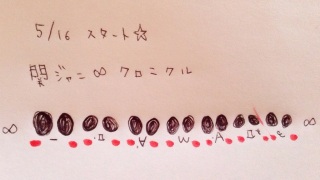 5/16 スタート☆
関ジャニ∞ クロニクル
∞ ∞